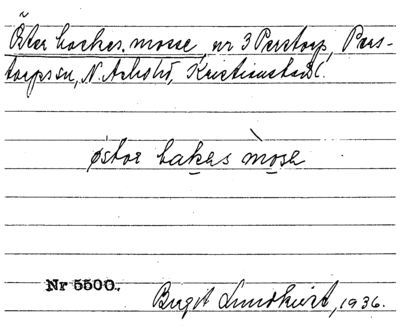 Öster backes mosse, nr 3 Perstorp, Pers-
torps sn, N. Åsbohd, Kristianstads l.
östor bakas mòsa
Nr 5500.
Birgit Lundkvist, 1936.